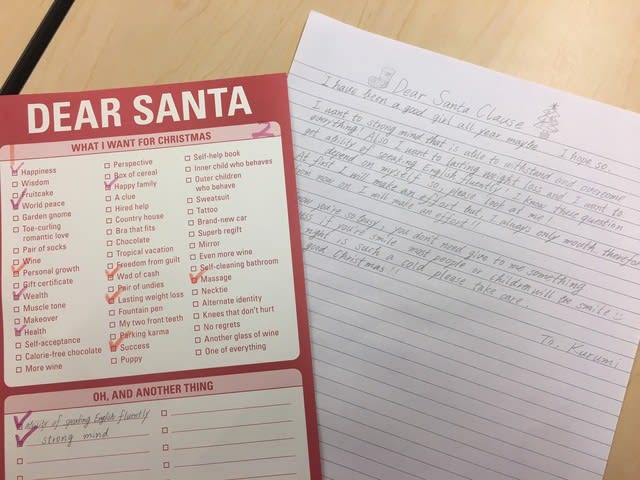 DEAR SANTA
WHAT I WANT FOR CHRISTMAS
Happiness
Wisdom
Fruitcake
World peace
Garden gnome
Toe-curling
romantic love
Pair of socks
Wine
Personal growth
Gift certificate
Wealth
Muscle tone
Makeover
Health
Self-acceptance
Calorie-free chocolate
More wine
Perspective
Box of cereal
Happy family
A clue
Hired help
Country house
Bra that fits
Chocolate
Tropical vacation
Freedom from guilt
Wad of cash
Pair of undies
Lasting weight loss
Fountain pen
My two front teeth
Parking karma
Success
Puppy
Self-help book
Inner child who behaves
Outer children
who behave
Sweatsuit
Tattoo
Brand-new car
Superb regift
Mirror
Even more wine
Self-cleaning bathroom
Massage
Necktie
Alternate identity
Knees that don't hurt
No regrets
Another glass of wine
One of everything
OH, AND ANOTHER THING
ability of speaking English fluently
strong mind
Dear Santa Clause
I have been a good girl all year maybe. I hope so.
I want to strong mind that is able to withstand and overcome
everything! Also I want to lasting weight loss and I want to
get ability of speaking English fluently! I know these question
depend on myself so, please look at me!
At first I will make an effort but I always only mouth. therefore
from now on. I will make an effort
know you're so busy, you don't need give to me something
you're smile most people or children will be smile
night is such a cold please take care.
good Christmas!!
To. Kurumi